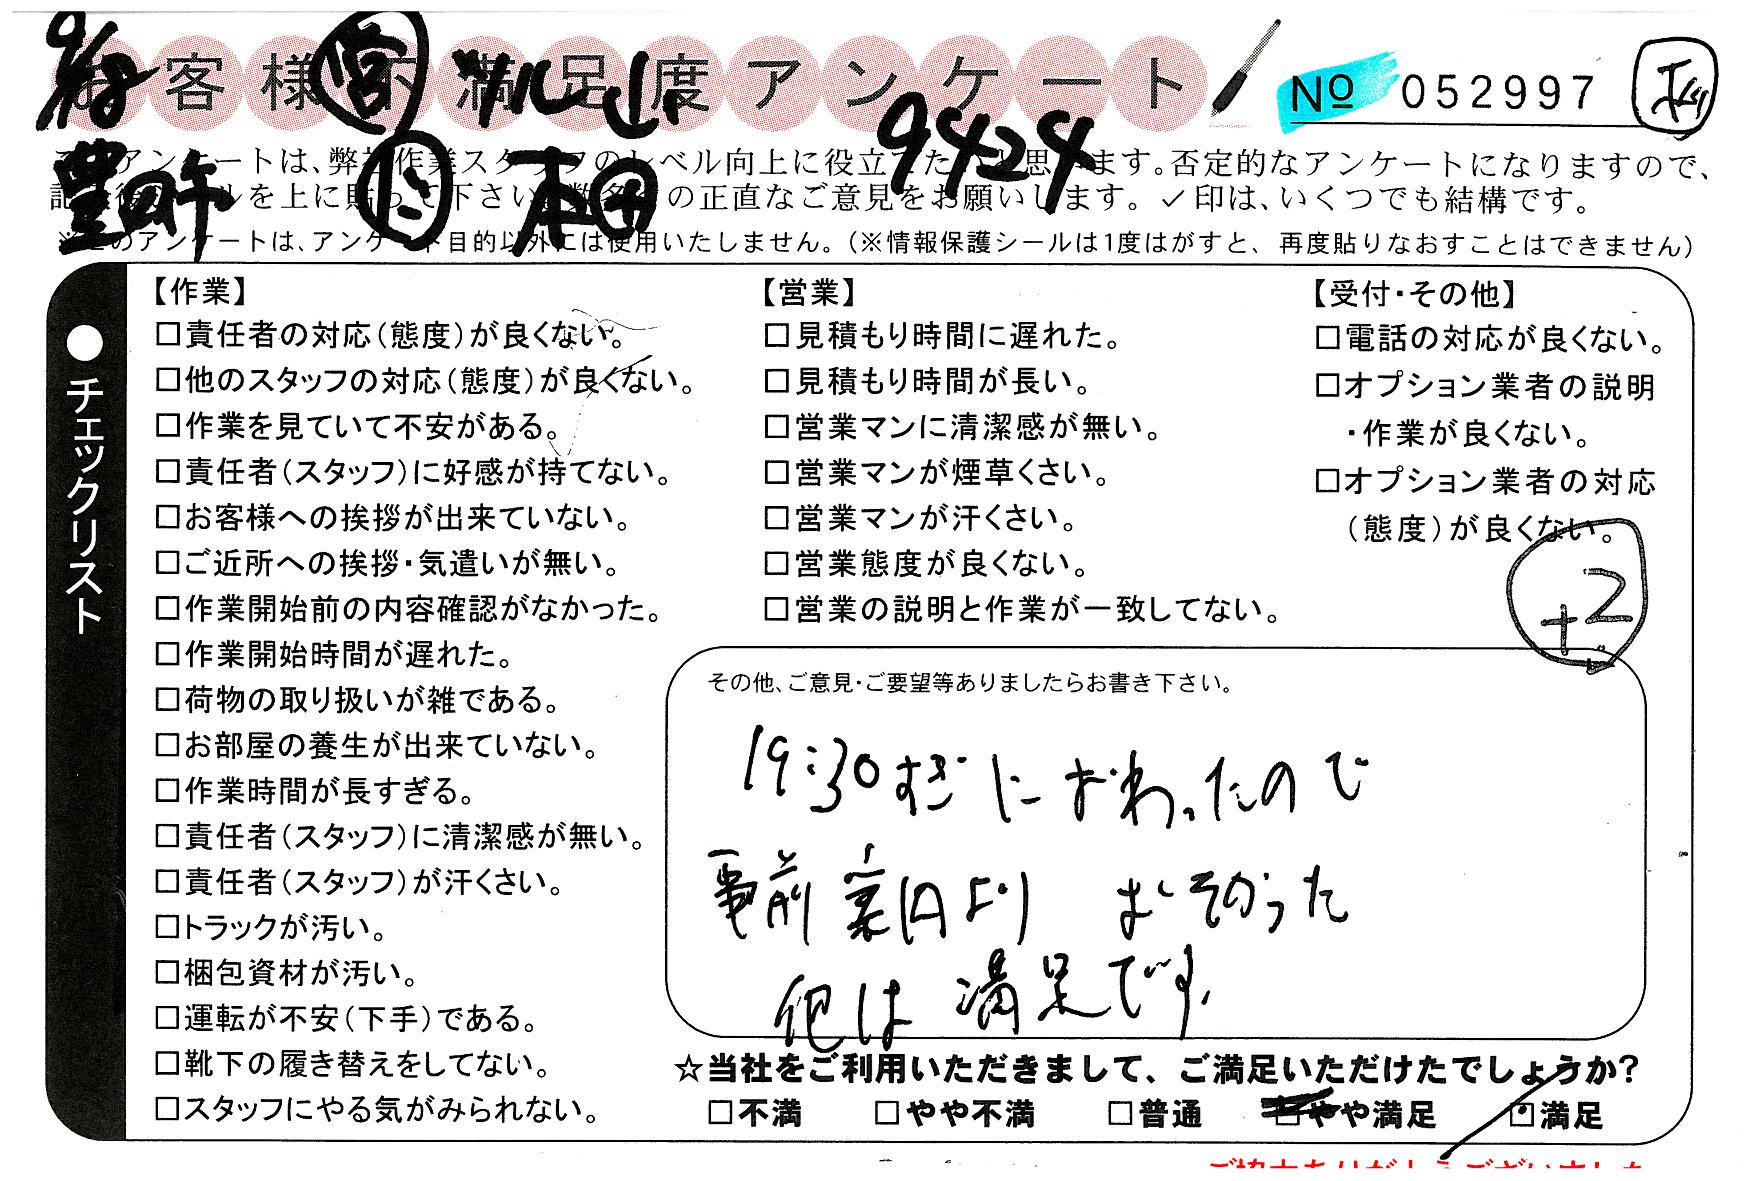 お客様不満足度アンケート
No 052997
9424
このアンケートは、弊社作業スタッフのレベル向上に役立てたいと思います。否定的なアンケートになりますので、
の正直なご意見をお願いします。✓印は、いくつでも結構です。
※このアンケートは、アンケート目的以外には使用いたしません。（※情報保護シールは1度はがすと、再度貼りなおすことはできません）
豊田
本田
●チェックリスト
【作業】
□責任者の対応（態度）が良くない。
□他のスタッフの対応（態度）が良くない。
□作業を見ていて不安がある。
□責任者（スタッフ）に好感が持てない。
□お客様への挨拶が出来ていない。
□ご近所への挨拶・気遣いが無い。
□作業開始前の内容確認がなかった。
□作業開始時間が遅れた。
□荷物の取り扱いが雑である。
□お部屋の養生が出来ていない。
□作業時間が長すぎる。
□責任者（スタッフ）に清潔感が無い。
□責任者（スタッフ）が汗くさい。
□トラックが汚い。
□梱包資材が汚い。
□運転が不安（下手）である。
□靴下の履き替えをしてない。
□スタッフにやる気がみられない。
【営業】
□見積もり時間に遅れた。
□見積もり時間が長い。
□営業マンに清潔感が無い。
□営業マンが煙草くさい。
□営業マンが汗くさい。
□営業態度が良くない。
□営業の説明と作業が一致してない。
【受付・その他】
□電話の対応が良くない。
□オプション業者の説明
・作業が良くない。
□オプション業者の対応
（態度）が良くない。
+2
その他、ご意見・ご要望等ありましたらお書き下さい。
19:30すぎにおわったので
事前案内より おそかった
他は 満足です。
☆当社をご利用いただきまして、ご満足いただけたでしょうか?
□不満 □やや不満 □普通 □やや満足 □満足
ご協力ありがとうございました